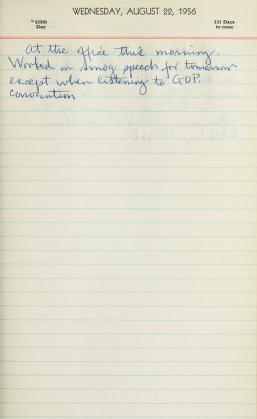 WEDNESDAY, AUGUST 22, 1956
235th
Day
131 Days
to come
At the office this morning.
Worked on smog speech for tomorrow
except when listening to GOP.
convention